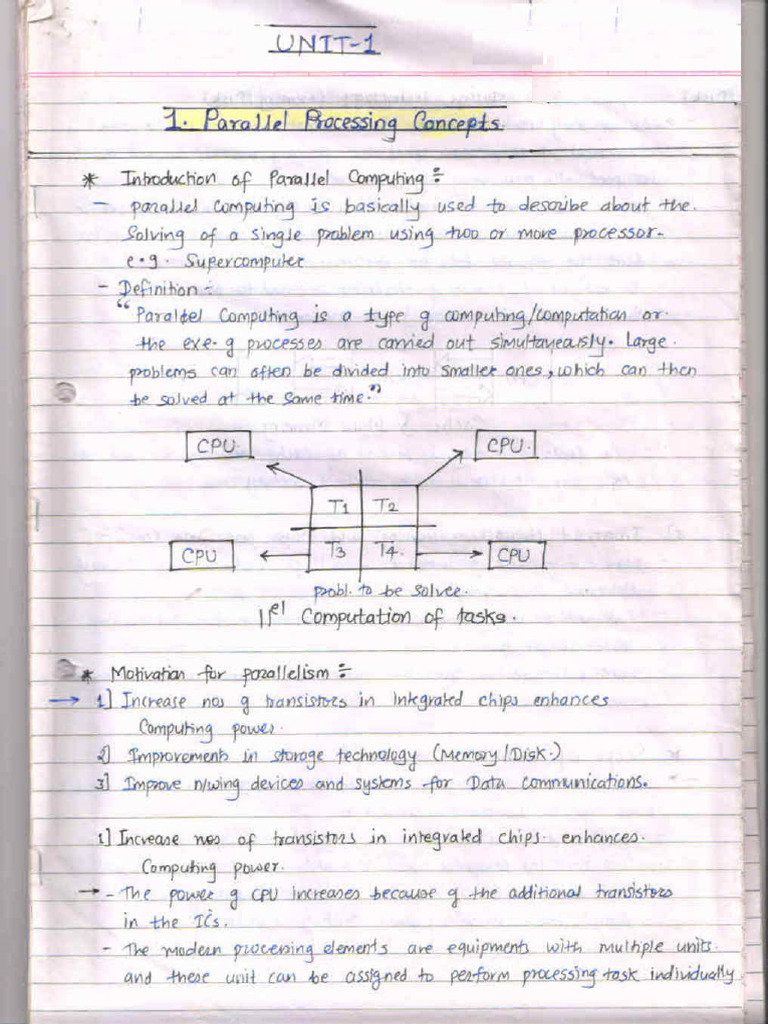 UNIT-1
1. Parallel Processing Concepts.
* Introduction of Parallel Computing :-
- parallel computing is basically used to describe about the
Solving of a single problem using two or more processor.
e.g. Supercomputer
- Definition :-
"Parallel Computing is a type of computing/computation or
the exe. of processes are carried out simultaneously. Large
problems can often be divided into smaller ones, which can then
be solved at the same time."
CPU. CPU.
T1 T2
CPU T3 T4. CPU
probl. to be solvee.
||el Computation of tasks.
* Motivation for parallelism :-
→ 1] Increase nos of transistors in integrated chips enhances
Computing power.
2] Improvement in storage technology (Memory/Disk.)
3] Improve n/wing devices and systems for Data communications.
1] Increase nos of transistors in integrated chips. enhances.
Computing power.
→ - The power of CPU increases because of the additional transistors
in the ICs.
- The modern processing elements are equipments with multiple units.
and these unit can be assigned to perform processing task individually